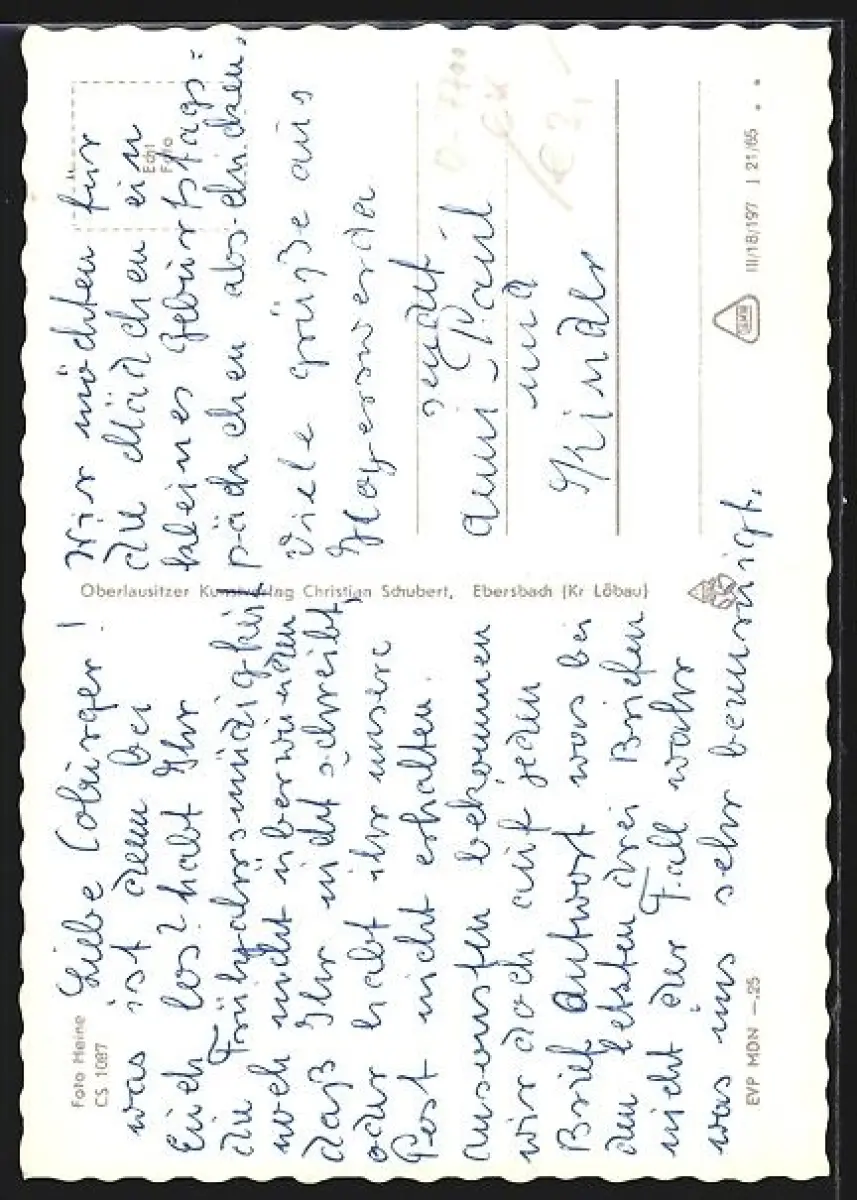 Foto Heine
CS 1087
Liebe Coburger!
was ist denn bei
Euch los? habt Ihr
die Frühjahrsmüdigkeit
noch nicht überwunden
daß Ihr nicht schreibt,
oder habt ihr unsere
Post nicht erhalten.
Ansonsten bekommen
wir doch auf jeden
Brief Antwort was bei
den letzten drei Briefen
nicht der Fall wahr
was uns sehr beunruigt.
EVP MDN -.25
Oberlausitzer Kunstverlag Christian Schubert, Ebersbach (Kr Löbau)
Echt
Foto
Wir möchten für
die Mädchen ein
kleines Geburtstags=
päckchen absenden,
Viele Grüße aus
Hoyerswerda
sendet
Anni Paul
und
Kinder
III/18/197 I 21/65